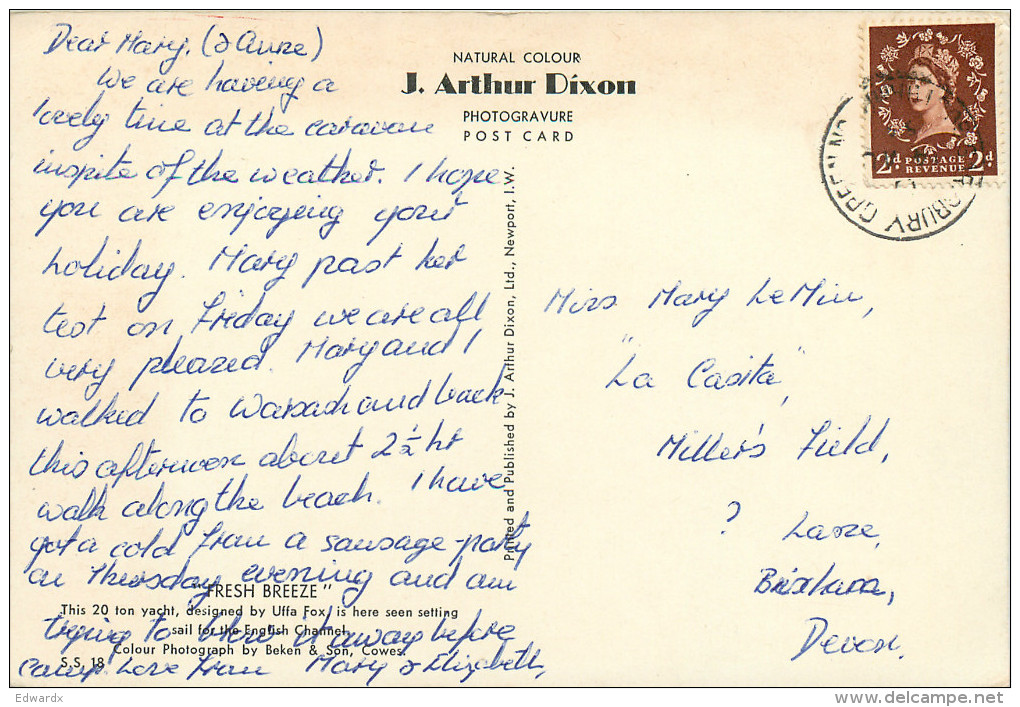 Dear Mary. (& Anne)
We are having a
lovely time at the caravan
inspite of the weather. I hope
you are enjoying your
holiday. Mary past her
test on Friday we are all
very pleazed. Mary and I
walked to Warsash and back
this afternoon about 2½ hr
walk along the beach. I have
got a cold from a sausage-party
on Thursday evening and am
trying to blow it away before
camp. Love from Mary & Elizabeth,
NATURAL COLOUR
J. Arthur Dixon
PHOTOGRAVURE
POST CARD
Printed and Published by J. Arthur Dixon, Ltd., Newport, I.W.
"FRESH BREEZE"
This 20 ton yacht, designed by Uffa Fox, is here seen setting
sail for the English Channel.
Colour Photograph by Beken & Son, Cowes.
S.S. 18
2d POSTAGE 2d
REVENUE
BURY GREEN
Miss Mary LeMin,
"La Casita",
Miller's Field,
? Lane,
Brixham,
Devon.
Edwardx
delcampe.net